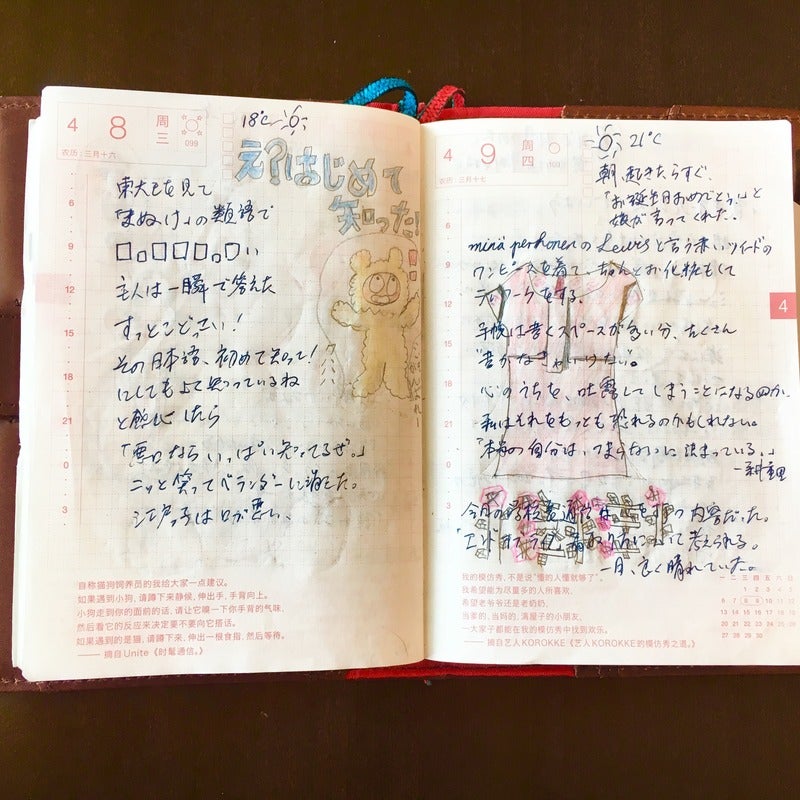 4 8 周三
099
农历:三月十六
18℃
え?はじめて
知った!
東大王を見て
「まぬけ」の類語で
□□□□□□い
主人は一瞬で答えた
すっとこどっこい!
その日本語、初めて知って!
にしてもよく知っているね
と感心したら
「悪口ならいっぱい知ってるぜ。」
ニッと笑ってベランダーに消えた。
江戸っ子は口が悪い、
9
12
15
18
21
0
3
自称猫狗饲养员的我给大家一点建议。
如果遇到小狗,请蹲下来静候,伸出手,手背向上。
小狗走到你的面前的话,请让它嗅一下你手背的气味,
然后看它的反应来决定要不要向它搭话。
如果遇到的是猫,请蹲下来,伸出一根食指,然后等待。
—— 摘自Unite《时髦通信。》
4 9 周四
100
农历:三月十七
21℃
朝、起きたらすぐ、
「お誕生日おめでとう!」と
娘が言ってくれた。
minä perhonenのLewisと言う赤いツイードの
ワンピースを着て、ちゃんとお化粧もして
テレワークをする。
手帳は書くスペースが多い分、たくさん
"書かなきゃいけない"。
心のうちを、吐露してしまうことになるのか、
私はそれをもっとも恐れるのかもしれない。
「本当の自分は、つまらないに決まっている。」
6
9
12
15
18
21
0
3
4
今月の学校
内容だった。
について考えられる。
一日、良く晴れていた。
我的模仿秀,不是说“懂的人懂就够了”。
我希望能为尽量多的人所喜欢,
希望老爷爷还是老奶奶,
当爹的,当妈的,满屋子的小朋友,
一大家子都能在我的模仿秀中找到欢乐。
—— 摘自艺人KOROKKE《艺人KOROKKE的模仿秀之道。》
一 二 三 四 五 六 日
1 2 3 4 5
6 7 8 9 10 11 12
13 14 15 16 17 18 19
20 21 22 23 24 25 26
27 28 29 30